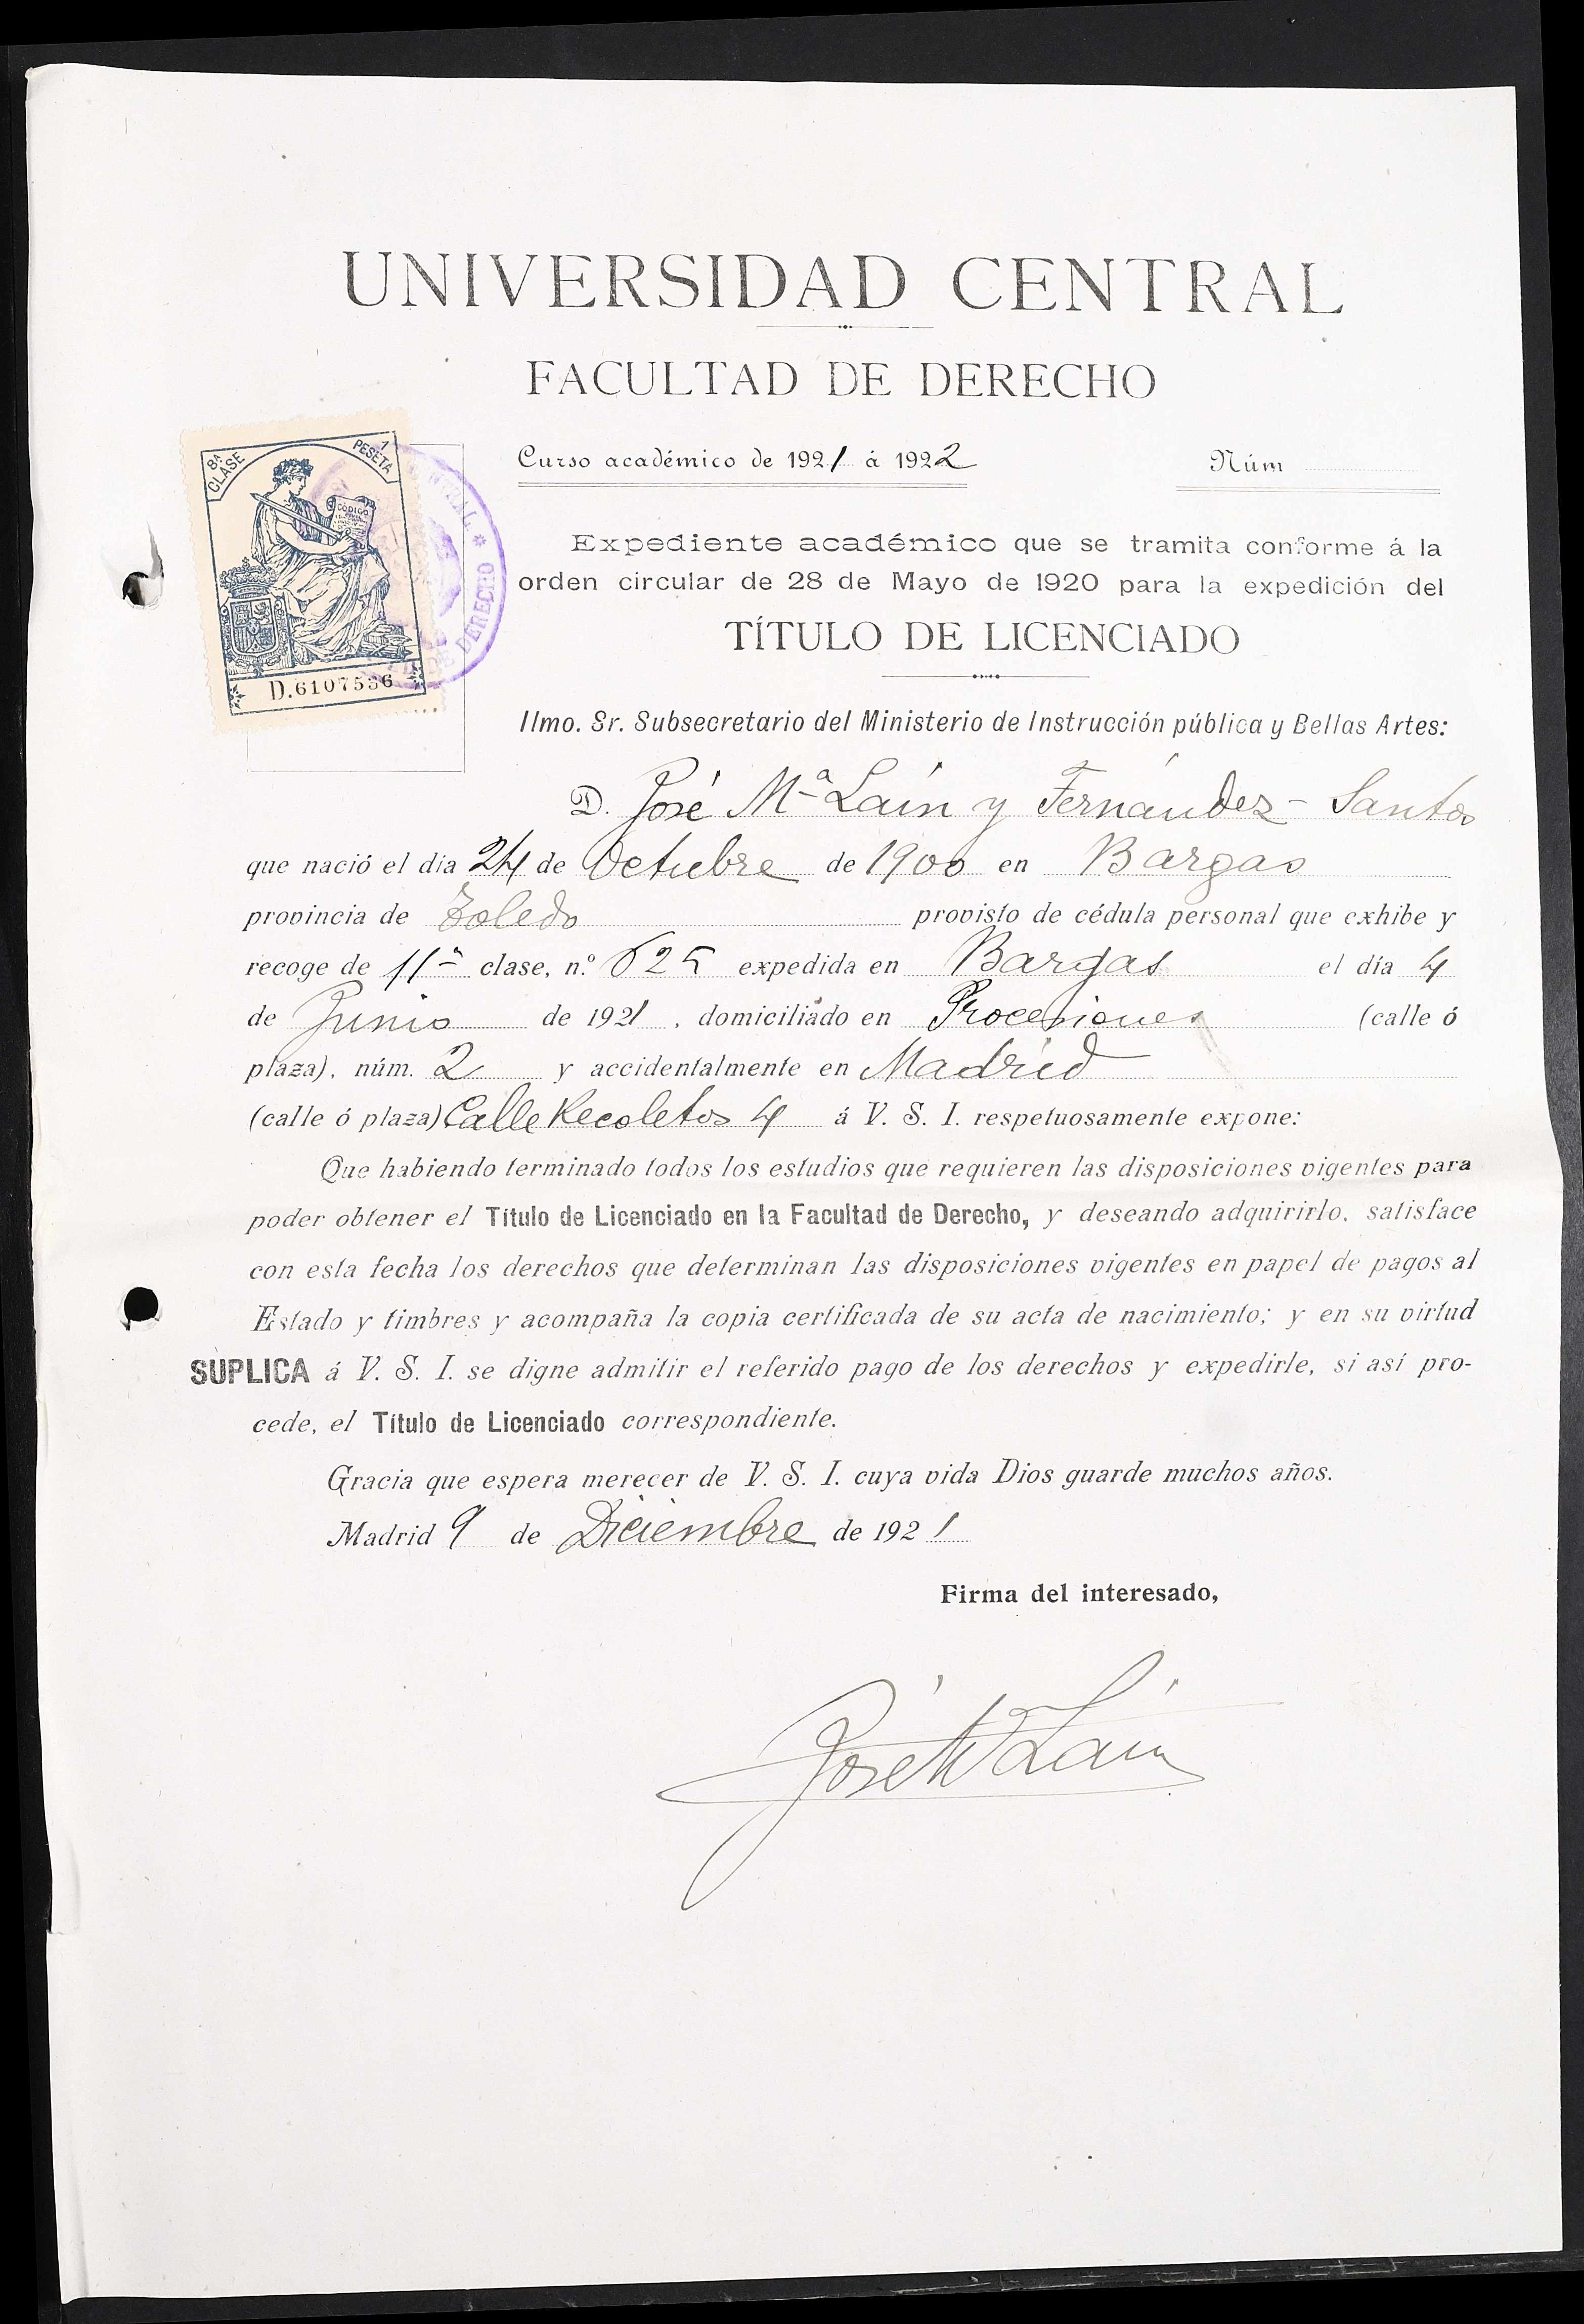 UNIVERSIDAD CENTRAL
FACULTAD DE DERECHO
8ª CLASE
1 PESETA
CÓDIGO
D.6107536
DE DERECHO
Curso académico de 1921 á 1922
Núm
Expediente académico que se tramita conforme á la
orden circular de 28 de Mayo de 1920 para la expedición del
TÍTULO DE LICENCIADO
Ilmo. Sr. Subsecretario del Ministerio de Instrucción pública y Bellas Artes:
D. José Mª Laín y Fernández-Santos
que nació el día 24 de Octubre de 1900 en Bargas
provincia de Toledo provisto de cédula personal que exhibe y
recoge de 11ª clase, n.º 625 expedida en Bargas el día 4
de Junio de 1921, domiciliado en Procesiones (calle ó
plaza), núm. 2 y accidentalmente en Madrid
(calle ó plaza) Calle Recoletos 4 á V. S. I. respetuosamente expone:
Que habiendo terminado todos los estudios que requieren las disposiciones vigentes para
poder obtener el Título de Licenciado en la Facultad de Derecho, y deseando adquirirlo, satisface
con esta fecha los derechos que determinan las disposiciones vigentes en papel de pagos al
Estado y timbres y acompaña la copia certificada de su acta de nacimiento; y en su virtud
SUPLICA á V. S. I. se digne admitir el referido pago de los derechos y expedirle, si así pro-
cede, el Título de Licenciado correspondiente.
Gracia que espera merecer de V. S. I. cuya vida Dios guarde muchos años.
Madrid 9 de Diciembre de 1921
Firma del interesado,
José Mª Laín